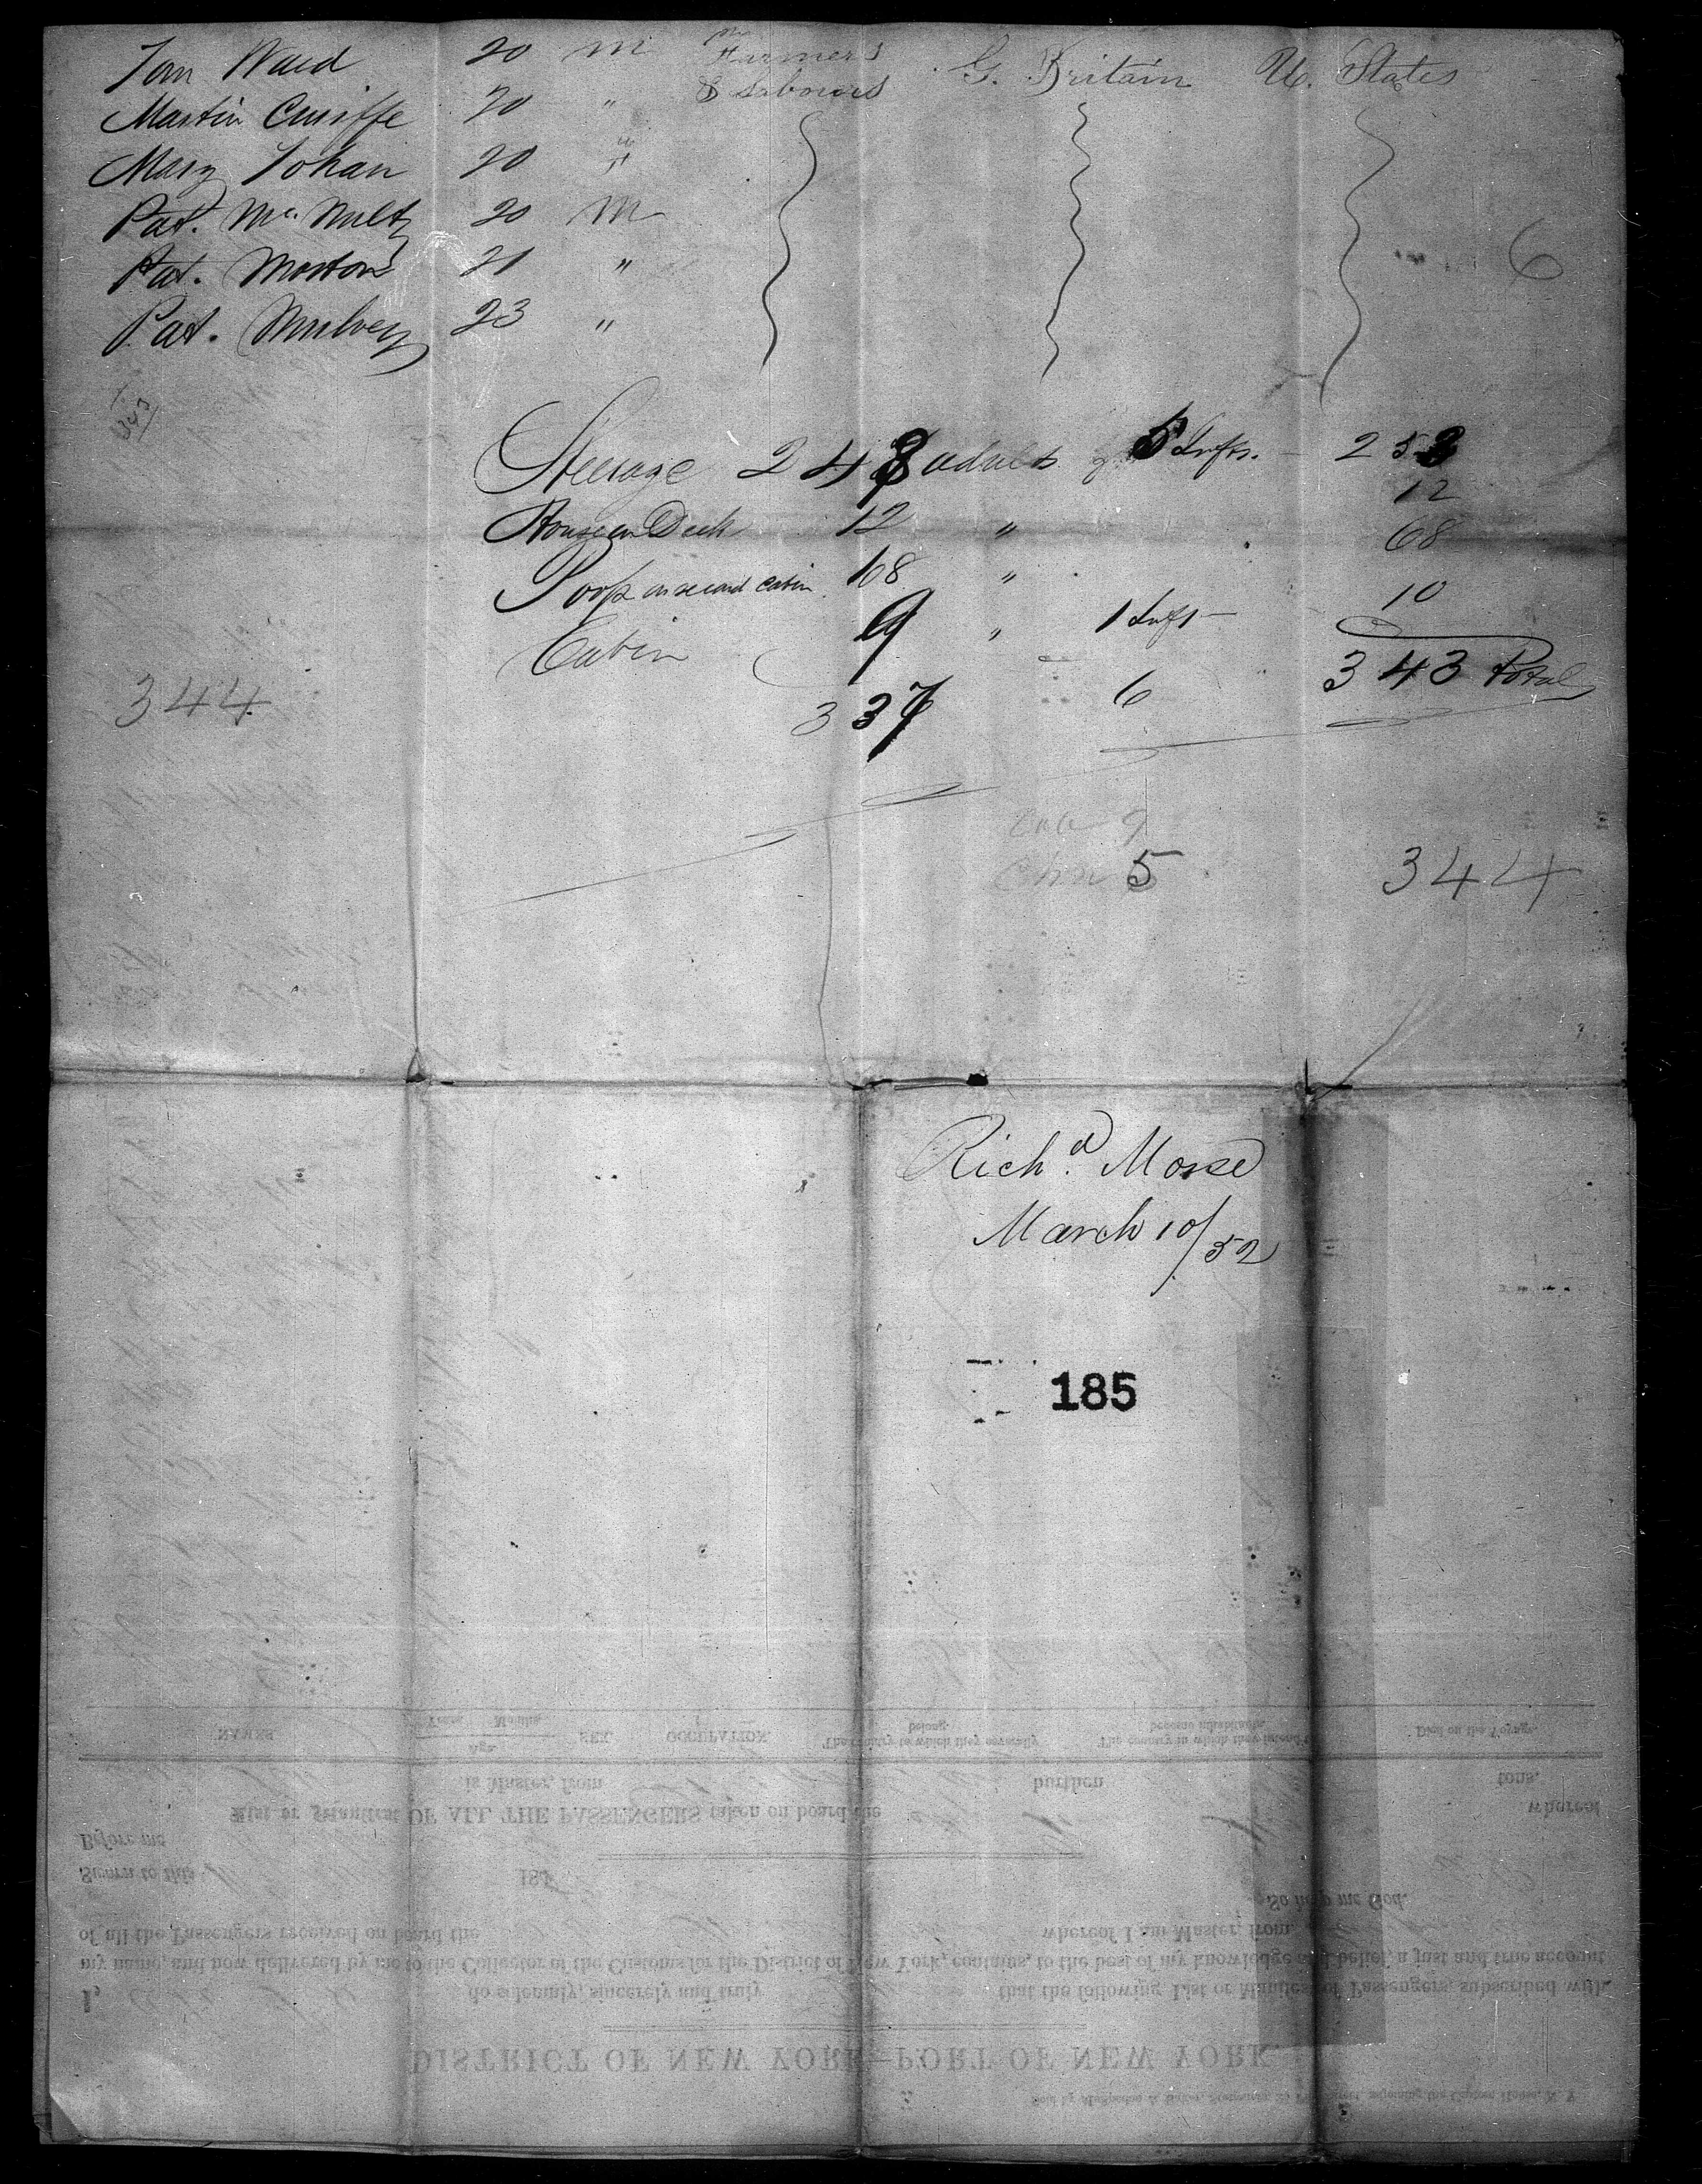 Tom Ward 20 m Farmers G. Britain U. States
Martin Cunffe 20 " & Labourers
Mary Tohan 20 "
Pat. Mc Nulty 20 m
Pat. Morton 21 " 6
Pat. Mulvey 23 "
343
Steerage 248 adults & 5 Infts. - 253
House on Deck 12 " 12
Poop or second Cabin 68 " 68
Cabin 9 " 1 Inft - 10
337 6 343 Total
344
9
5 344
Richd. Morse
March 10/52
185
NAMES Years. Months. Age. SEX. OCCUPATION. The country to which they severally belong. The country in which they intend to become inhabitants. Died on the Voyage.
is Master, from burthen tons.
List or Manifest OF ALL THE PASSENGERS taken on board the whereof
Before me
Sworn to this 184
So help me God.
of all the Passengers received on board the whereof I am Master, from
my name, and now delivered by me to the Collector of the Customs for the District of New York, contains, to the best of my knowledge and belief, a just and true account
I, do solemnly, sincerely and truly that the following List or Manifest of Passengers, subscribed with
DISTRICT OF NEW YORK—PORT OF NEW YORK.